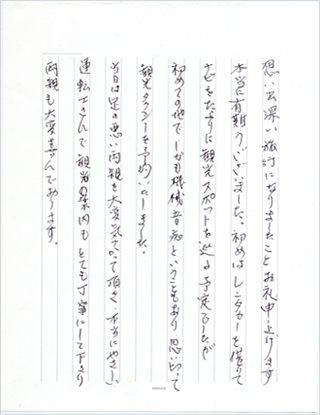 想い出深い旅行になりましたことお礼申し上げます
本当に有難うございました。初めはレンタカーを借りて
ナビをたよりに観光スポットを巡る予定でしたが
初めての地でしかも機械音痴ということもあり思い切って
観光タクシーを予約いたしました。
当日は足の悪い両親を大変気づかって頂き本当にやさしい
運転士さんで観光案内もとても丁寧にして下さり
両親も大変喜んでおります。